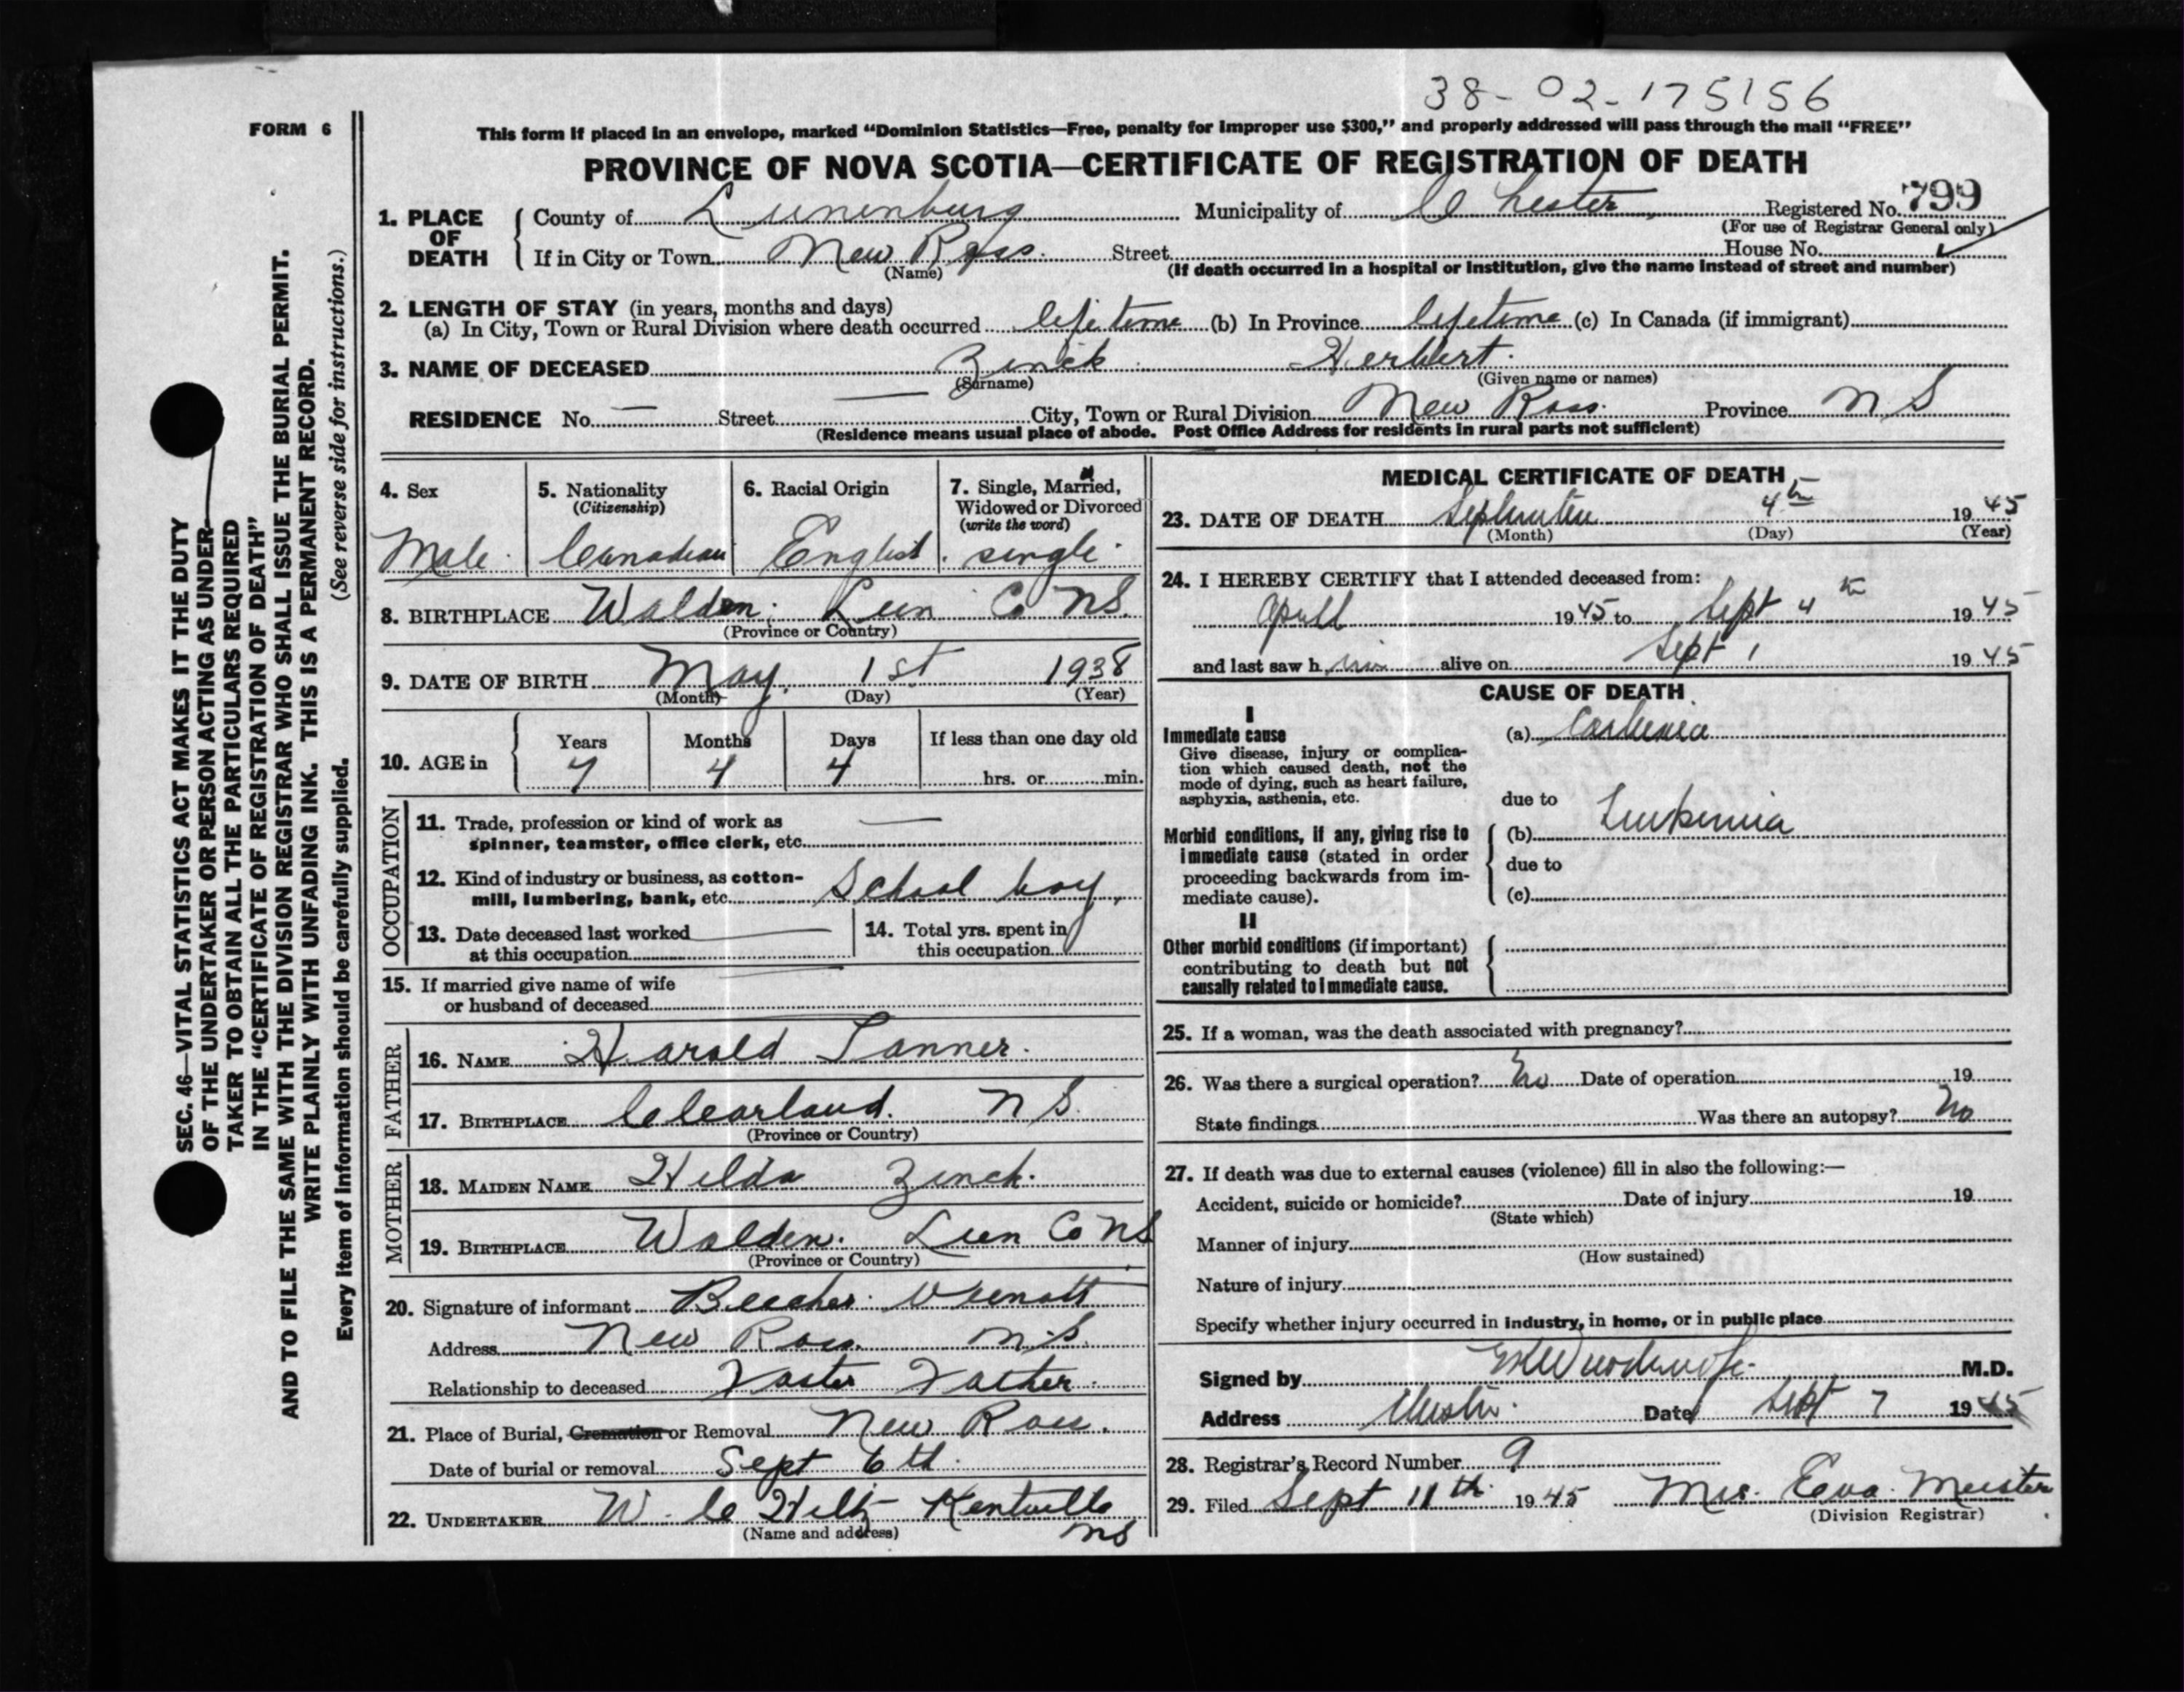 38-02-175156
FORM 6
This form if placed in an envelope, marked "Dominion Statistics—Free, penalty for improper use $300," and properly addressed will pass through the mail "FREE"
PROVINCE OF NOVA SCOTIA—CERTIFICATE OF REGISTRATION OF DEATH
1. PLACE OF DEATH
County of Lunenburg Municipality of Chester Registered No. 799
(For use of Registrar General only)
If in City or Town New Ross. Street House No.
(Name) (If death occurred in a hospital or institution, give the name instead of street and number)
2. LENGTH OF STAY (in years, months and days)
(a) In City, Town or Rural Division where death occurred lifetime (b) In Province lifetime (c) In Canada (if immigrant)
3. NAME OF DECEASED Zinck Herbert.
(Surname) (Given name or names)
RESIDENCE No. — Street — City, Town or Rural Division New Ross. Province N S
(Residence means usual place of abode. Post Office Address for residents in rural parts not sufficient)
4. Sex
Male.
5. Nationality
(Citizenship)
Canadian
6. Racial Origin
English.
7. Single, Married,
Widowed or Divorced
(write the word)
single.
8. BIRTHPLACE Walden. Lun Co NS.
(Province or Country)
9. DATE OF BIRTH May. 1st 1938
(Month) (Day) (Year)
10. AGE in
Years Months Days If less than one day old
7 4 4 hrs. or min.
OCCUPATION
11. Trade, profession or kind of work as
spinner, teamster, office clerk, etc. —
12. Kind of industry or business, as cotton-
mill, lumbering, bank, etc. School boy.
13. Date deceased last worked —
at this occupation
14. Total yrs. spent in
this occupation
15. If married give name of wife —
or husband of deceased
FATHER
16. NAME Harold Tanner.
17. BIRTHPLACE Clearland. N S.
(Province or Country)
MOTHER
18. MAIDEN NAME Hilda Zinck.
19. BIRTHPLACE Walden. Lun Co NS
(Province or Country)
20. Signature of informant Beecher
Address New Ross. N.S.
Relationship to deceased Foster Father.
21. Place of Burial, Cremation or Removal New Ross.
Date of burial or removal Sept 6th.
22. UNDERTAKER W. C Hiltz Kentville
(Name and address) NS
MEDICAL CERTIFICATE OF DEATH
23. DATE OF DEATH September 4th 1945
(Month) (Day) (Year)
24. I HEREBY CERTIFY that I attended deceased from:
April 1945 to Sept 4th 1945
and last saw him alive on Sept 1 1945
CAUSE OF DEATH
I
Immediate cause
Give disease, injury or complica-
tion which caused death, not the
mode of dying, such as heart failure,
asphyxia, asthenia, etc.
(a)
due to
Morbid conditions, if any, giving rise to
immediate cause (stated in order
proceeding backwards from im-
mediate cause).
(b) Leukemia
due to
(c)
II
Other morbid conditions (if important)
contributing to death but not
causally related to immediate cause.
25. If a woman, was the death associated with pregnancy?
26. Was there a surgical operation? No Date of operation 19
State findings Was there an autopsy? No
27. If death was due to external causes (violence) fill in also the following:—
Accident, suicide or homicide? Date of injury 19
(State which)
Manner of injury
(How sustained)
Nature of injury
Specify whether injury occurred in industry, in home, or in public place
Signed by M.D.
Address Chester. Date Sept 7 1945
28. Registrar's Record Number 9
29. Filed Sept 11th 1945 Mrs. Eva Meister
(Division Registrar)
SEC. 46—VITAL STATISTICS ACT MAKES IT THE DUTY
OF THE UNDERTAKER OR PERSON ACTING AS UNDER-
TAKER TO OBTAIN ALL THE PARTICULARS REQUIRED
IN THE "CERTIFICATE OF REGISTRATION OF DEATH"
AND TO FILE THE SAME WITH THE DIVISION REGISTRAR WHO SHALL ISSUE THE BURIAL PERMIT.
WRITE PLAINLY WITH UNFADING INK. THIS IS A PERMANENT RECORD.
Every item of information should be carefully supplied. (See reverse side for instructions.)